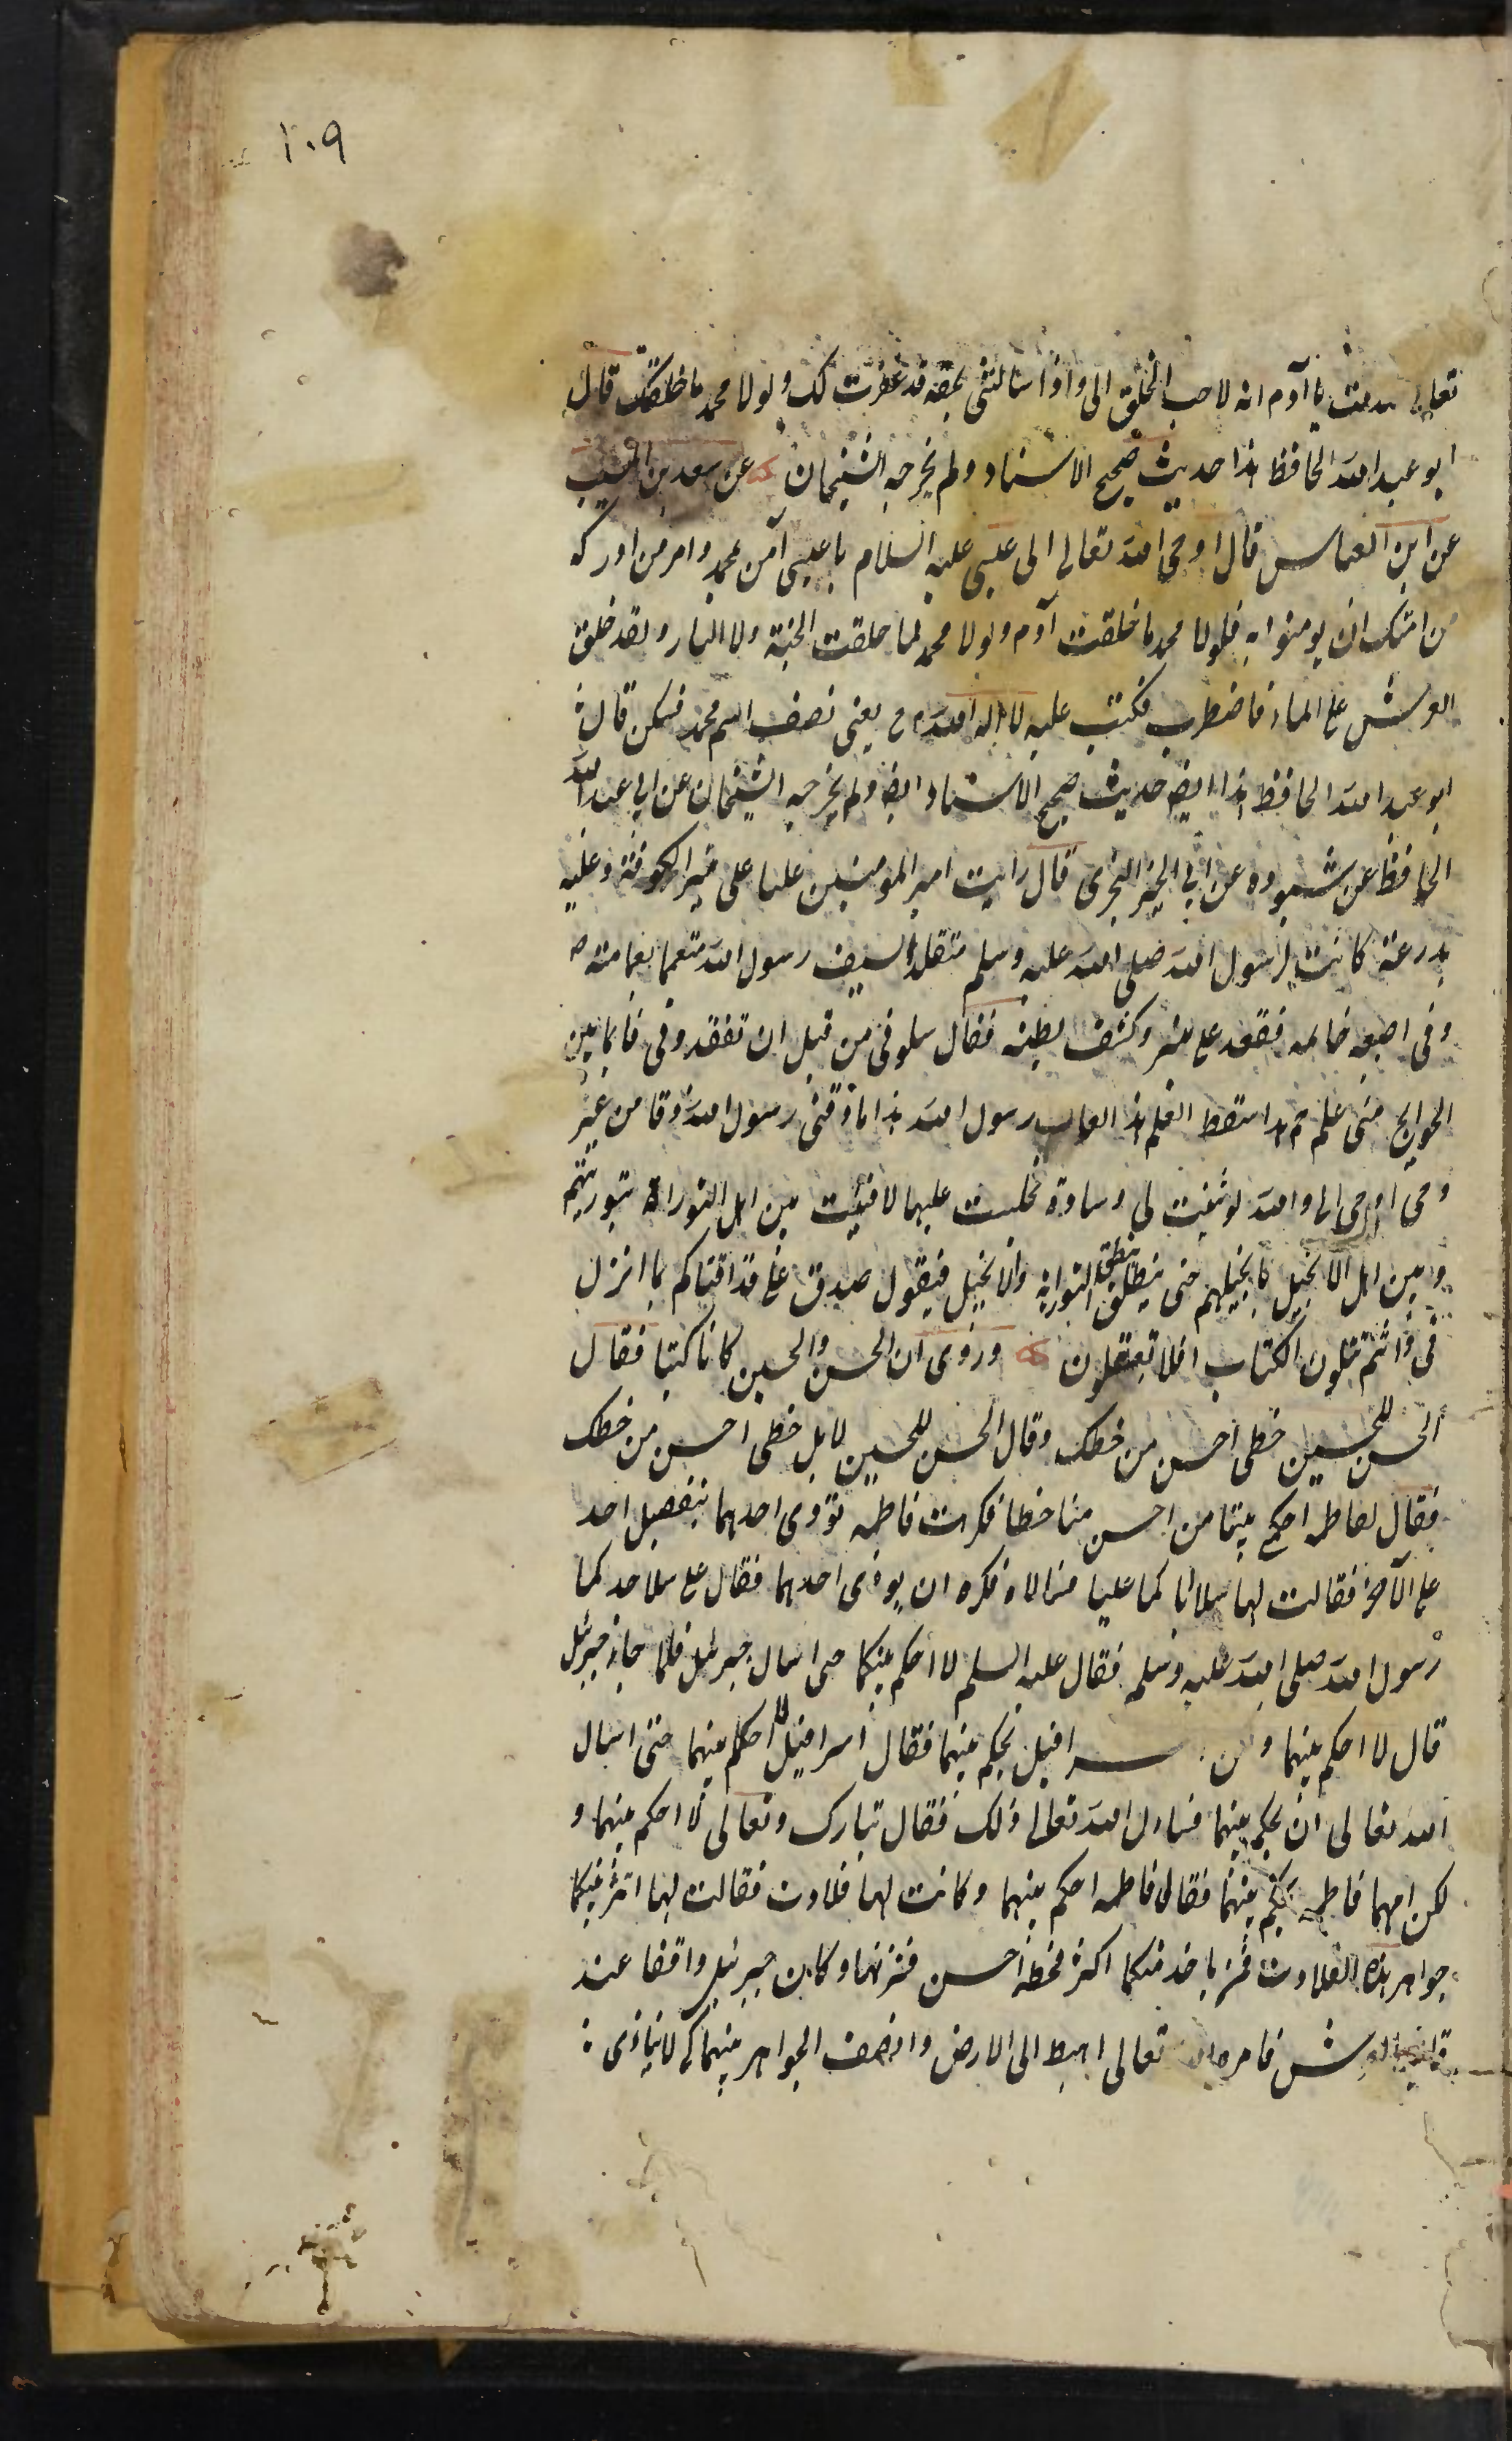 ٢٠٩
تعالى صدقت يا آدم انه لاحب الخلق الى واذا سالتنى بحقه قد غفرت لك ولولا محمد ما خلقتك قال
ابو عبد الله الحافظ هذا حديث صحيح الاسناد ولم يخرجه الشيخان عن سعد بن المسيب
عن ابن العباس قال اوحى الله تعالى الى عيسى عليه السلام يا عيسى آمن بمحمد وامر من ادركه
من امتك ان يومنوا به فلولا محمد ما خلقت آدم ولولا محمد لما خلقت الجنة ولا النار ولقد خلق
العرش على الماء فاضطرب فكتب عليه لا اله الا الله م ح يعنى نصف اسم محمد فسكن قال
ابو عبد الله الحافظ هذا ايضا حديث صحيح الاسناد ايضا ولم يخرجه الشيخان عن ابى عبد الله
الحافظ عن عن ابى قال رايت امير المومنين عليا على منبر الكوفة وعليه
مدرعة كانت لرسول الله صلى الله عليه وسلم متقلدا لسيف رسول الله متعمما بعمامته
وفى اصبعه خاتمه فقعد على منبر وكشف بطنه فقال سلونى من قبل ان تفقدونى فانما بين
الجوانح منى علم جم هذا سقط العلم هذا لعاب رسول الله هذا ما زقنى رسول الله زقا من غير
وحى اوحى الى والله لو ثنيت لى وسادة فجلست عليها لافتيت بين اهل التوراة بتوريتهم
وبين اهل الانجيل بانجيلهم حتى ينطق التورية والانجيل فيقول صدق على قد افتاكم بما انزل
فى وانتم تتلون الكتاب افلا تعقلون وروى ان الحسن والحسين كانا كتبا فقال
الحسن للحسين خطى احسن من خطك وقال الحسن للحسين لا بل خطى احسن من خطك
فقال لفاطمه احكمى بيننا من احسن منا خطا فكرهت فاطمه توذى احدهما بتفضيل احد
على الآخر فقالت لهما سلا اباكما عليا فسالاه فكره ان يوذى احدهما فقال على سلا جدكما
رسول الله صلى الله عليه وسلم فقال عليه السلم لا احكم بينكما حتى اسال جبرئيل فلما جاء جبرئيل
قال لا احكم بينهما و اسرافيل يحكم بينهما فقال اسرافيل لا احكم بينهما حتى اسال
الله تعالى ان يحكم بينهما فسال الله تعالى ذلك فقال تبارك وتعالى لا احكم بينهما و
لكن امهما فاطمه تحكم بينهما فقال فاطمه احكم بينهما وكانت لها قلادت فقالت لهما انثر بينكما
جواهر هذه القلادت فمن ياخذ منكما اكثر فخطه احسن فنثرتها وكان جبرئيل واقفا عند
قائمة العرش فامره الله تعالى اهبط الى الارض وانصف الجواهر بينهما كى لا يتاذى